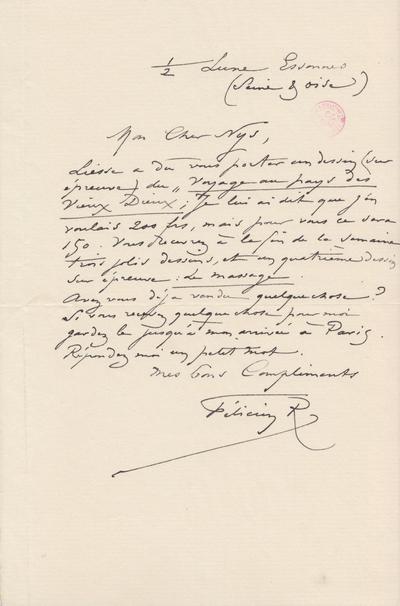 1/2 Lune Essonnes
(Seine & oise)
Mon Cher Nys,
Liesse a du vous porter un dessin (sur
épreuve) du „ Voyage au pays des
Vieux Dieux ; Je lui ai dit que j'en
voulais 200 frs, mais pour vous ce sera
150. Vous recevrez à la fin de la semaine
trois jolis dessins, et un quatrième dessin
sur épreuve : le massage.
Avez vous déjà vendu quelque chose ?
Si vous recevez quelque chose pour moi
gardez le jusqu'à mon arrivée à Paris.
Répondez moi un petit mot.
Mes bons Compliments
Félicien R